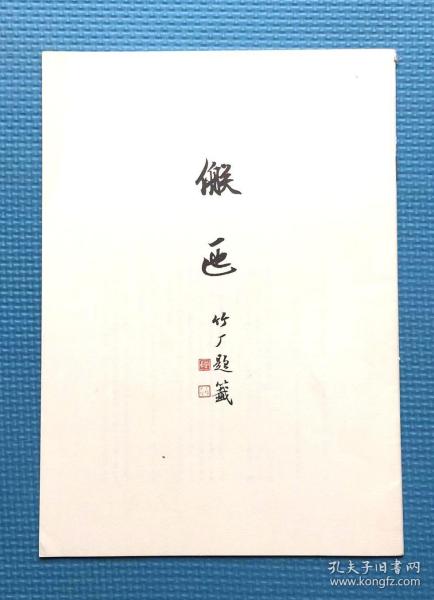 匜
竹厂題籤
孔夫子旧书网
www.kongfz.com